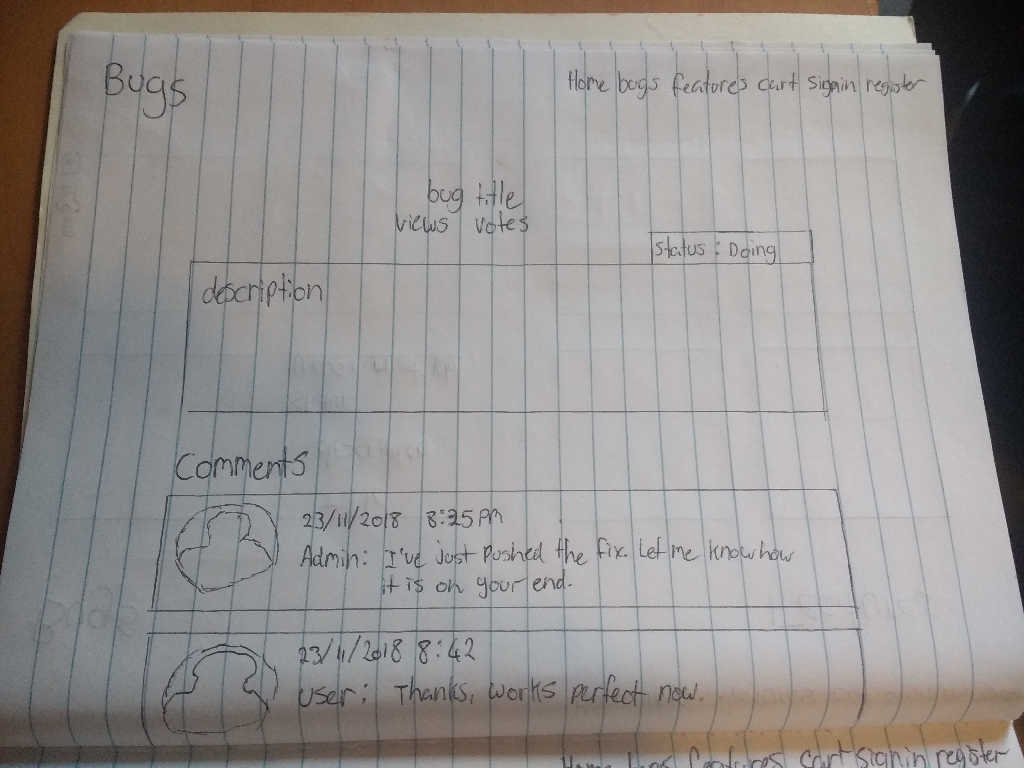 Bugs
Home bugs features cart signin register
bug title
views votes
Status: Doing
description
Comments
23/11/2018 8:35pm
Admin: I've just pushed the fix. Let me know how
it is on your end.
23/11/2018 8:42
User: Thanks, works perfect now.
Home bugs features cart signin register